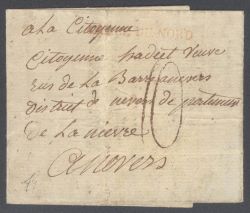 a La Citoyenne
NORD
Citoyenne hadeet veuve
rue de La Barre a nevers
District de nevers departement
De La nievre
10
A nevers